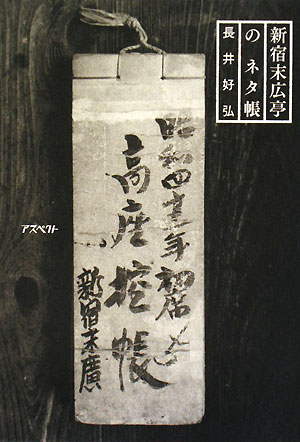 新宿末広亭
のネタ帳
長井好弘
昭和四 年初席
高座控帳
新宿末廣
アスペクト